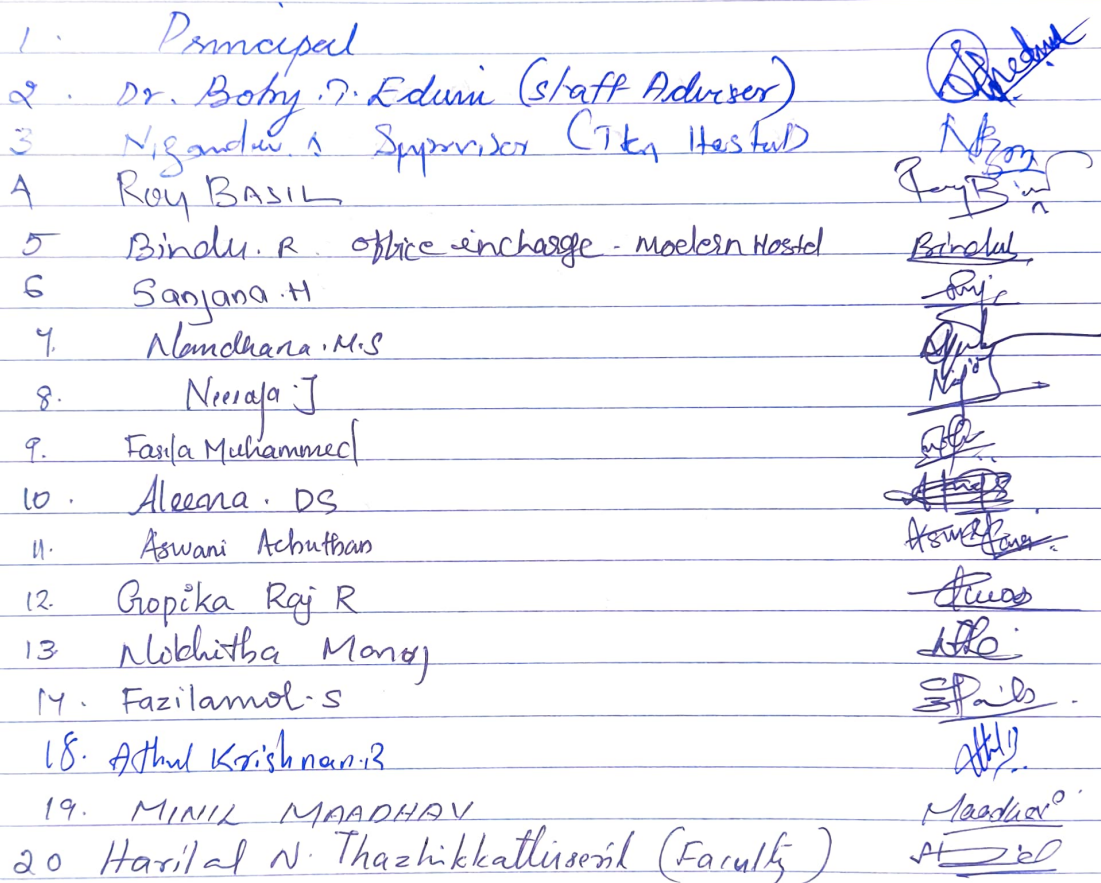 1. Principal
2. Dr. Boby. T. Eduin (staff Adviser)
3 Supervisor Hostel)
4 ROY BASIL Roy B
5 Bindu. R. office incharge - modern Hostel Bindu
6 Sanjana. H
7. Nandhana. M.S
8. Neeraja. J
9. Fasila Muhammed
10. Aleena. DS
11. Aswani Achuthan
12. Gopika Raj R
13 Nikhitha Manoj
14. Fazilamol. S
18. Athul Krishnan. R
19. MINIL MAADHAV Maadhav
20 Harilal N. (Faculty)